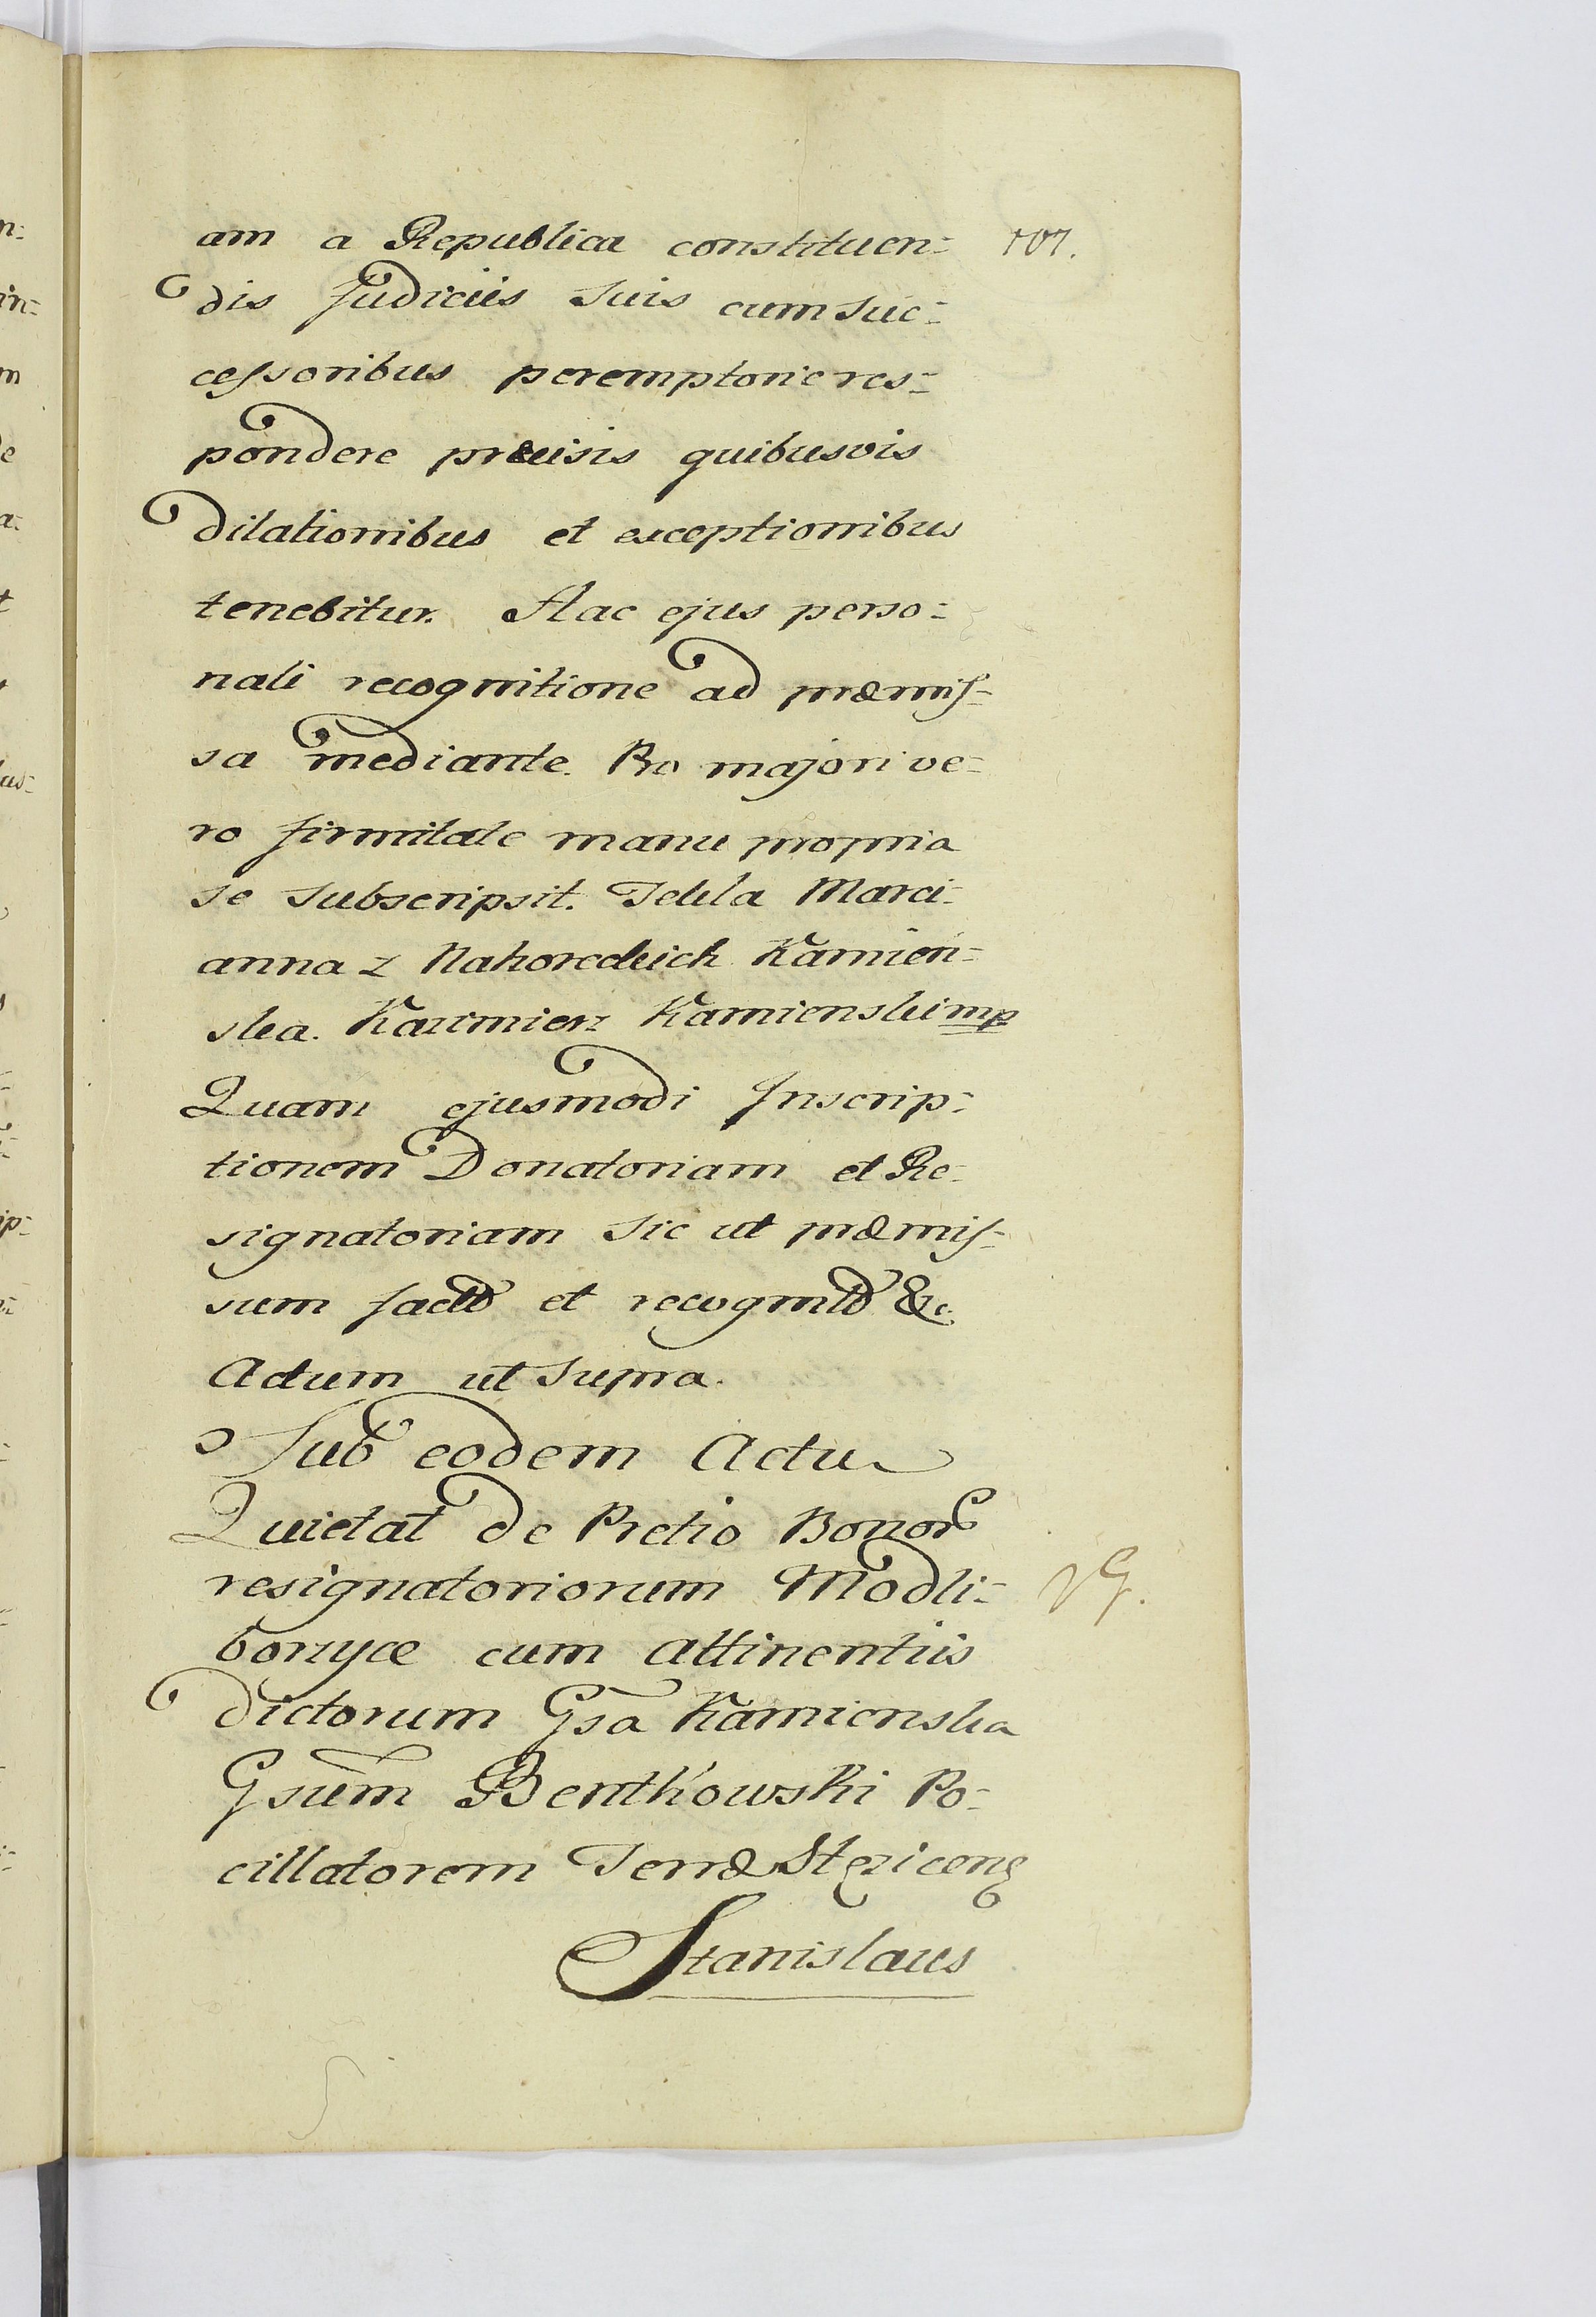 am a Republica constituen= 107.
dis Judiciis suis cum suc=
cessoribus peremptorie res=
pondere præcisis quibusvis
dilationibus et exceptionibus
tenebitur. Hac ejus perso=
nali recognitione ad præmis=
sa mediante. Pro majori ve=
ro firmitate manu propria
se subscripsit. Tekla Marci=
anna z Nahoreckich Kamien=
ska. Kazimierz Kamienski mp
Quam ejusmodi Inscrip=
tionem Donatoriam et Re=
signatoriam sic ut præmis=
sum factõ et recognitõ &c.
Actum ut supra.
Sub eodem Actu
Quietat de Pretio Bonor
resignatoriorum Modli=
borzyce cum attinentiis
dictorum Gsa Kamienska
Gsum Benthowski Po=
cillatorem Terræ Stęzicens
Stanislaus